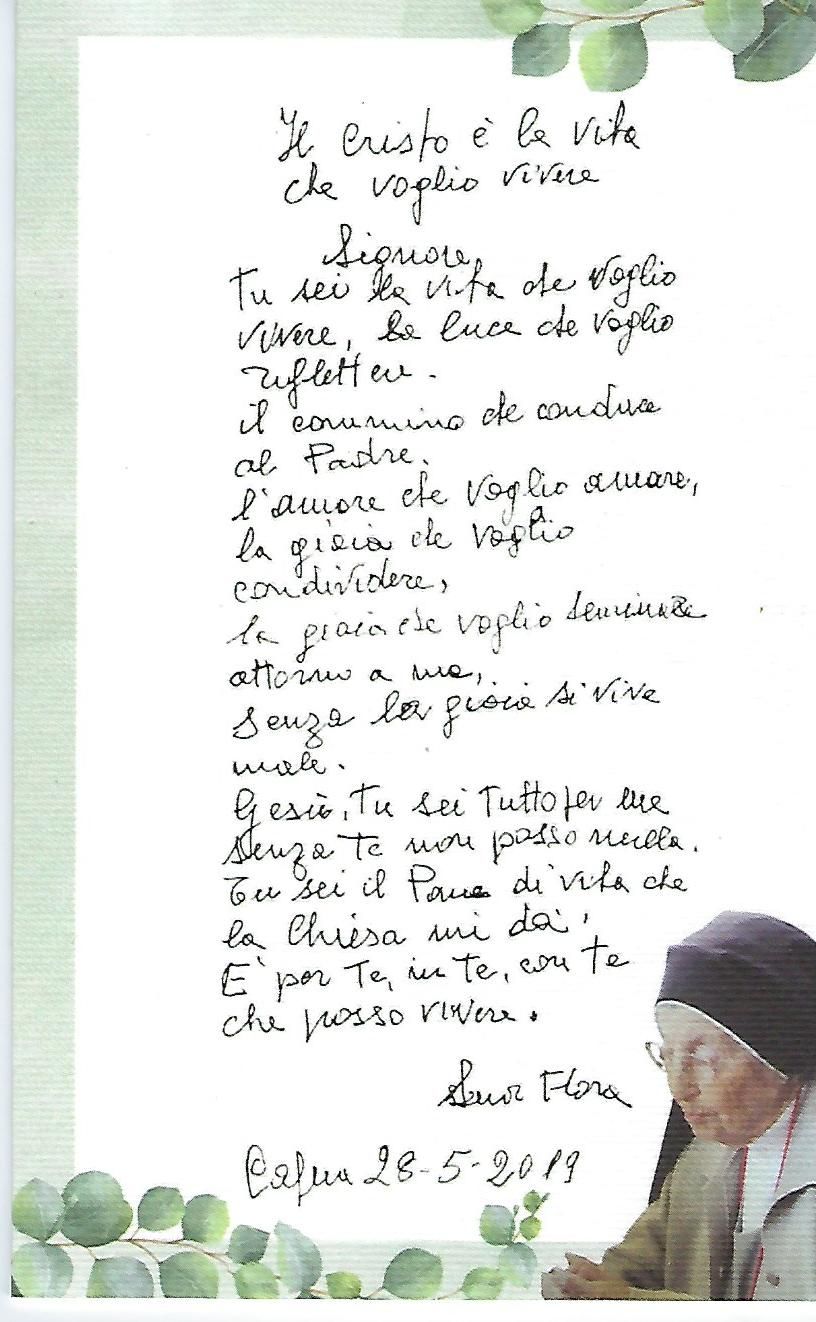 Il Cristo è la vita
che voglio vivere
Signore,
Tu sei la vita che voglio
vivere, la luce che voglio
riflettere.
il cammino che conduce
al Padre.
l'amore che voglio amare,
la gioia che voglio
condividere,
la gioia che voglio seminare
attorno a me,
senza la gioia si vive
male.
Gesù, Tu sei Tutto per me
senza Te non posso nulla.
Tu sei il Pane di vita che
la Chiesa mi dà,
E' per Te, in te, con te
che posso vivere.
Suor Flora
28-5-2019